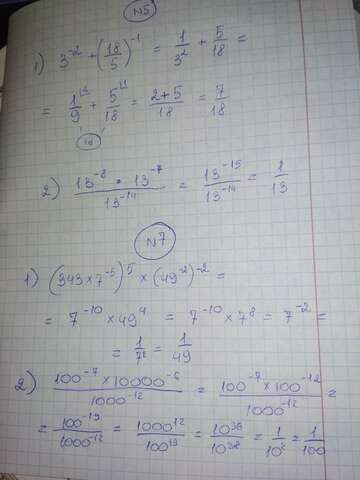 N5
1) 3⁻² + (18/5)⁻¹ = 1/3² + 5/18 =
= 1/9 + 5/18 = 2+5/18 = 7/18
2) 13⁻⁸ · 13⁻⁷/13⁻¹⁴ = 13⁻¹⁵/13⁻¹⁴ = 1/13
N7
1) (343×7⁻⁵)⁵ × (49⁻²)⁻² =
= 7⁻¹⁰ × 49⁴ = 7⁻¹⁰ × 7⁸ = 7⁻² =
= 1/7² = 1/49
2) 100⁻⁷ × 10000⁻⁶/1000⁻¹² = 100⁻⁷ × 100⁻¹²/1000⁻¹² =
= 100⁻¹⁹/1000⁻¹² = 1000¹²/100¹⁹ = 10³⁶/10³⁸ = 1/10² = 1/100